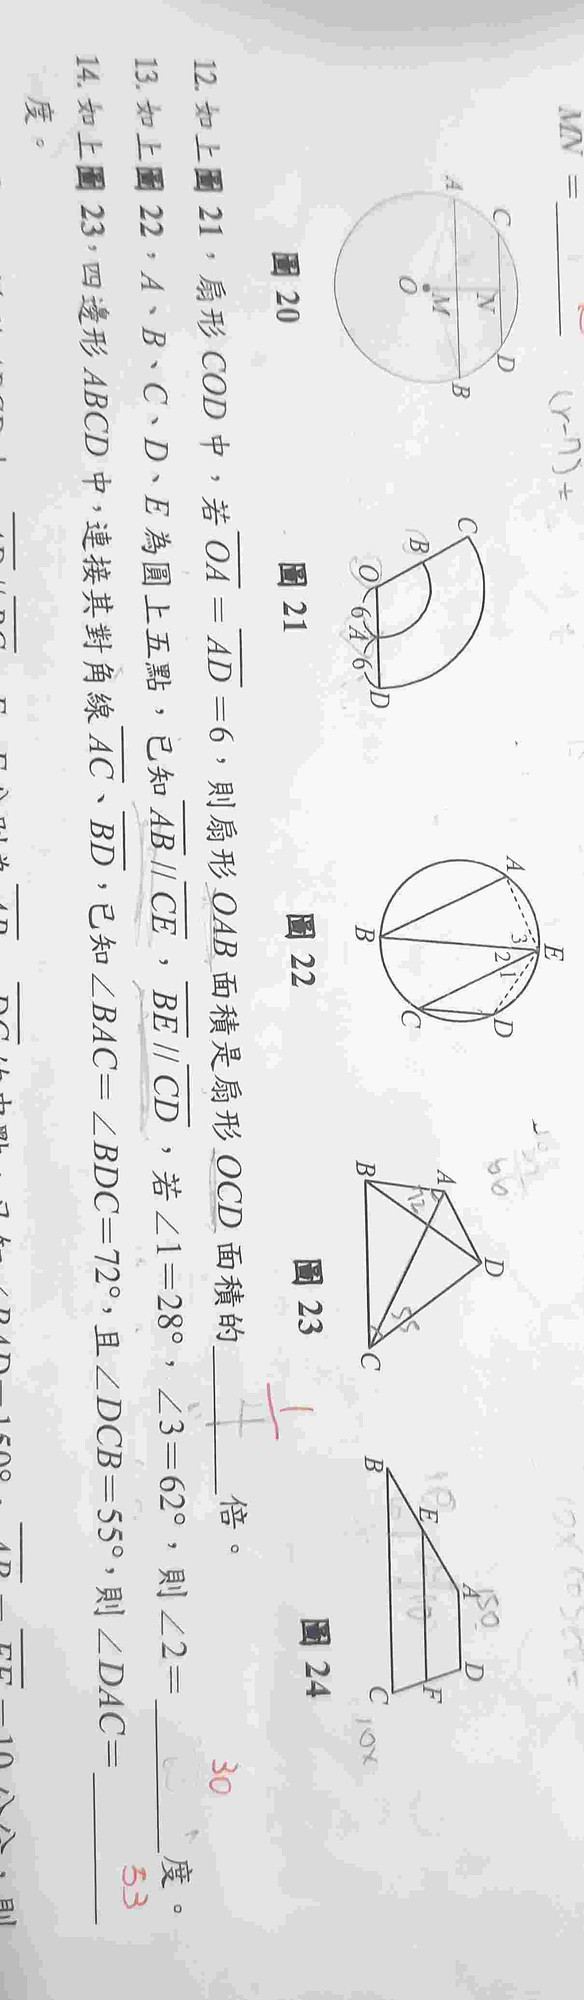 MN = ____
(r-7)²
A B C D M N O
圖 20
C B O 6 A 6 D
圖 21
A B C D E 1 2 3
圖 22
A B C D 72 55
圖 23
A B C D E F 150 10x
圖 24
12. 如上圖 21，扇形 COD 中，若 OA = AD = 6，則扇形 OAB 面積是扇形 OCD 面積的 ____ 倍。
13. 如上圖 22，A、B、C、D、E 為圓上五點，已知 AB // CE，BE // CD，若 ∠1=28°，∠3=62°，則 ∠2= ____ 度。
30
14. 如上圖 23，四邊形 ABCD 中，連接其對角線 AC、BD，已知 ∠BAC=∠BDC=72°，且 ∠DCB=55°，則 ∠DAC= ____
53
度。